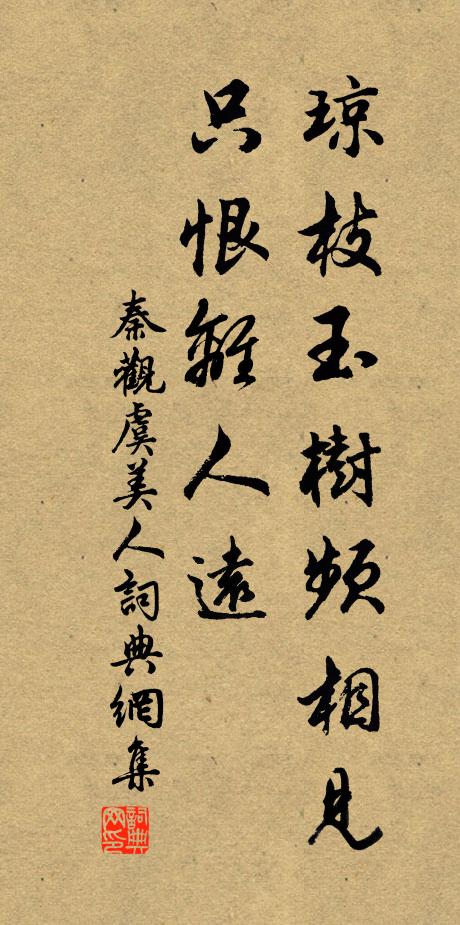 琼枝玉樹頻相見
只恨離人遠
秦觀虞美人詞典網集
詞典網印